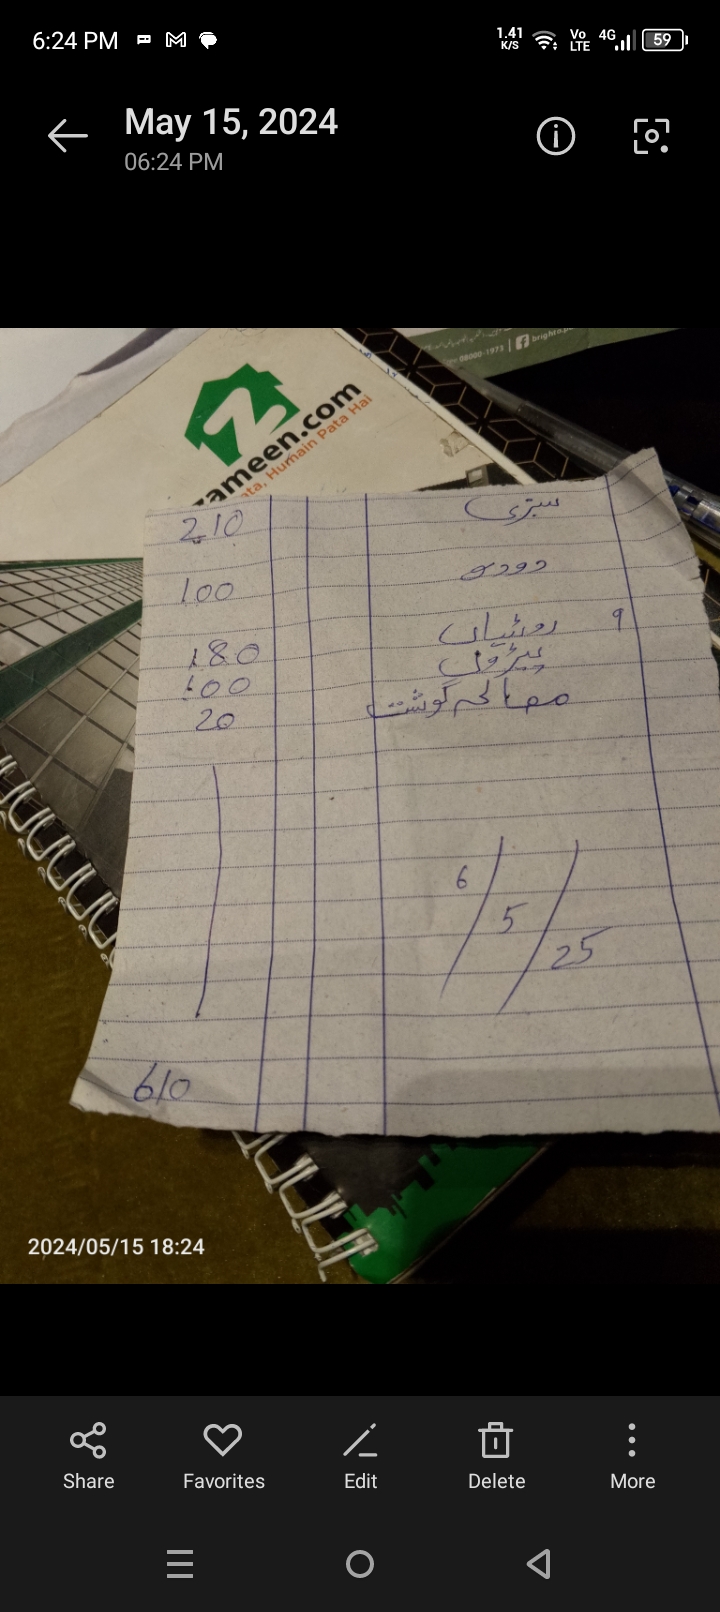 6:24 PM
1.41 K/S Vo LTE 4G 59
May 15, 2024
06:24 PM
08000-1973 | brighto.p
zameen.com
ata, Humain Pata Hai
سبزی 210
دودھ 100
9 روٹیاں 180
پیٹرول 100
مصالحہ گوشت 20
6/5/25
610
2024/05/15 18:24
Share Favorites Edit Delete More